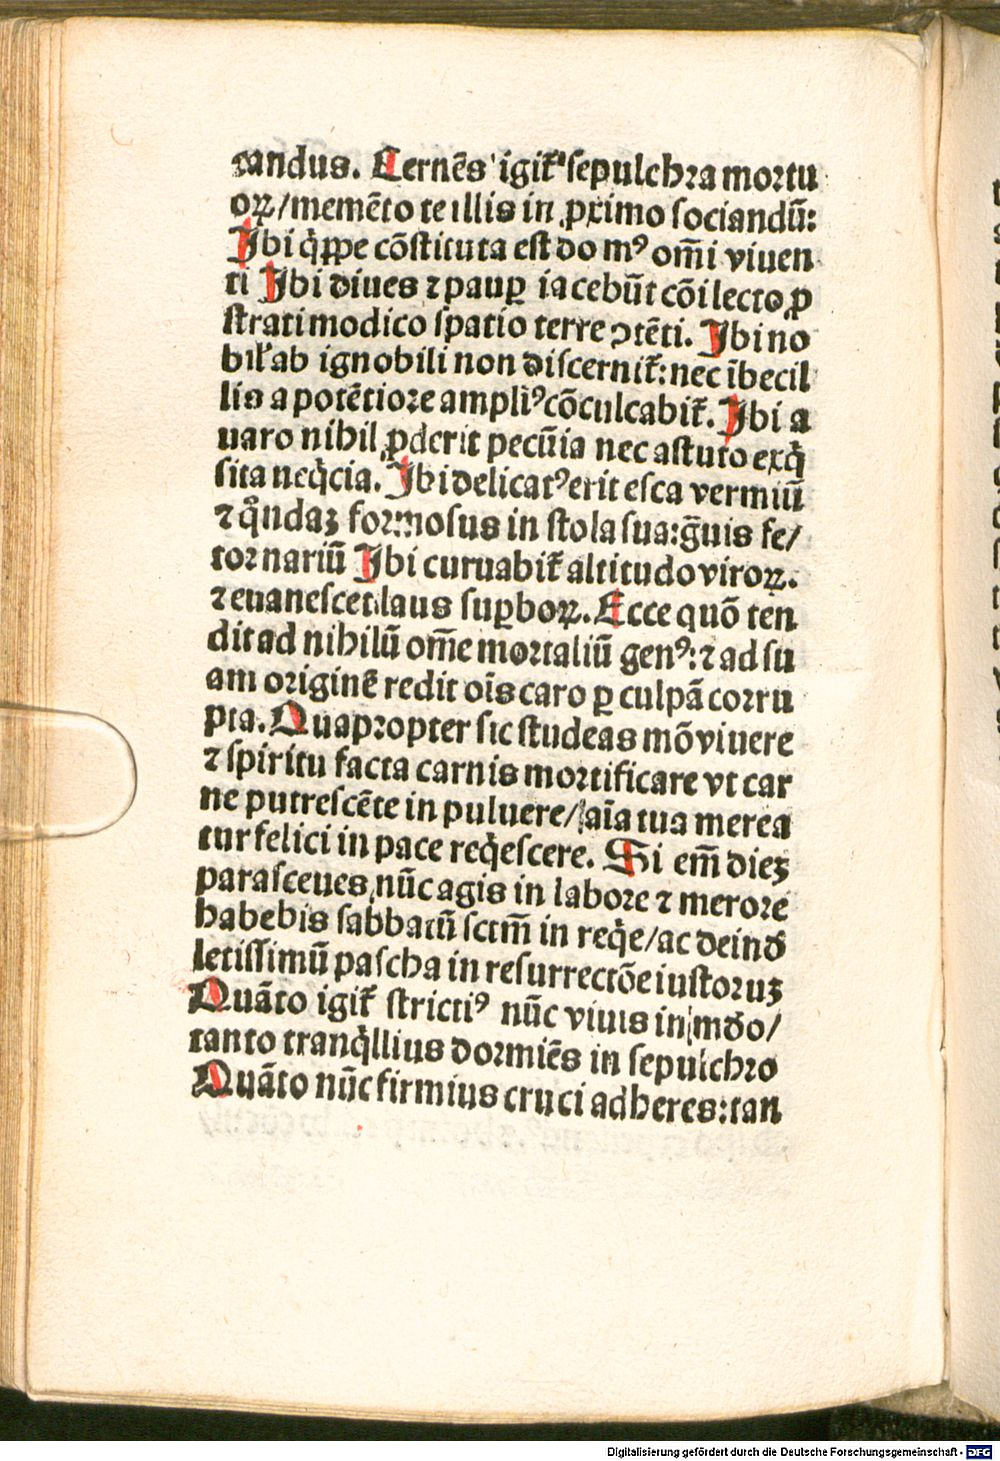 tandus. Cernēs igit᷑ sepulchra mortu
oꝝ/memēto te illis in ꝓximo sociandū:
Ibi q̇ppe cōstituta est do mꝰ om̄i viuen
ti Ibi diues ⁊ pauꝑ iacebūt cōi lecto ꝓ
strati modico spatio terre ꝯtēti. Ibi no
bil᷑ ab ignobili non discernit᷑: nec ībecil
lis a potētiore ampliꝰ cōculcabit᷑. Ibi a
uaro nihil ꝓderit pecūia nec astuto exq̇
sita neq̇cia. Ibi delicatꝰ erit esca vermiū
⁊ qͦndaꝫ formosus in stola sua: g̃uis fe/
tor nariū Ibi curuabit᷑ altitudo viroꝝ.
⁊ euanescet laus suꝑboꝝ. Ecce quō ten
dit ad nihilū om̄e mortaliū genꝰ: ⁊ ad su
am originē redit oīs caro ꝑ culpā corru
pta. Quapropter sic studeas mō viuere
⁊ spiritu facta carnis mortificare vt car
ne putrescēte in puluere/ aīa tua merea
tur felici in pace req̇escere. Si em̄ dieꝫ
parasceues nūc agis in labore ⁊ merore
habebis sabbatū sctm̄ in req̇e/ac deinđ
letissimū pascha in resurrectōe iustoruꝫ
Quāto igit᷑ strictiꝰ nūc viuis in mđo/
tanto tranq̇llius dormiēs in sepulchro
Quāto nūc firmius cruci adheres: tan
Digitalisierung gefördert durch die Deutsche Forschungsgemeinschaft - DFG